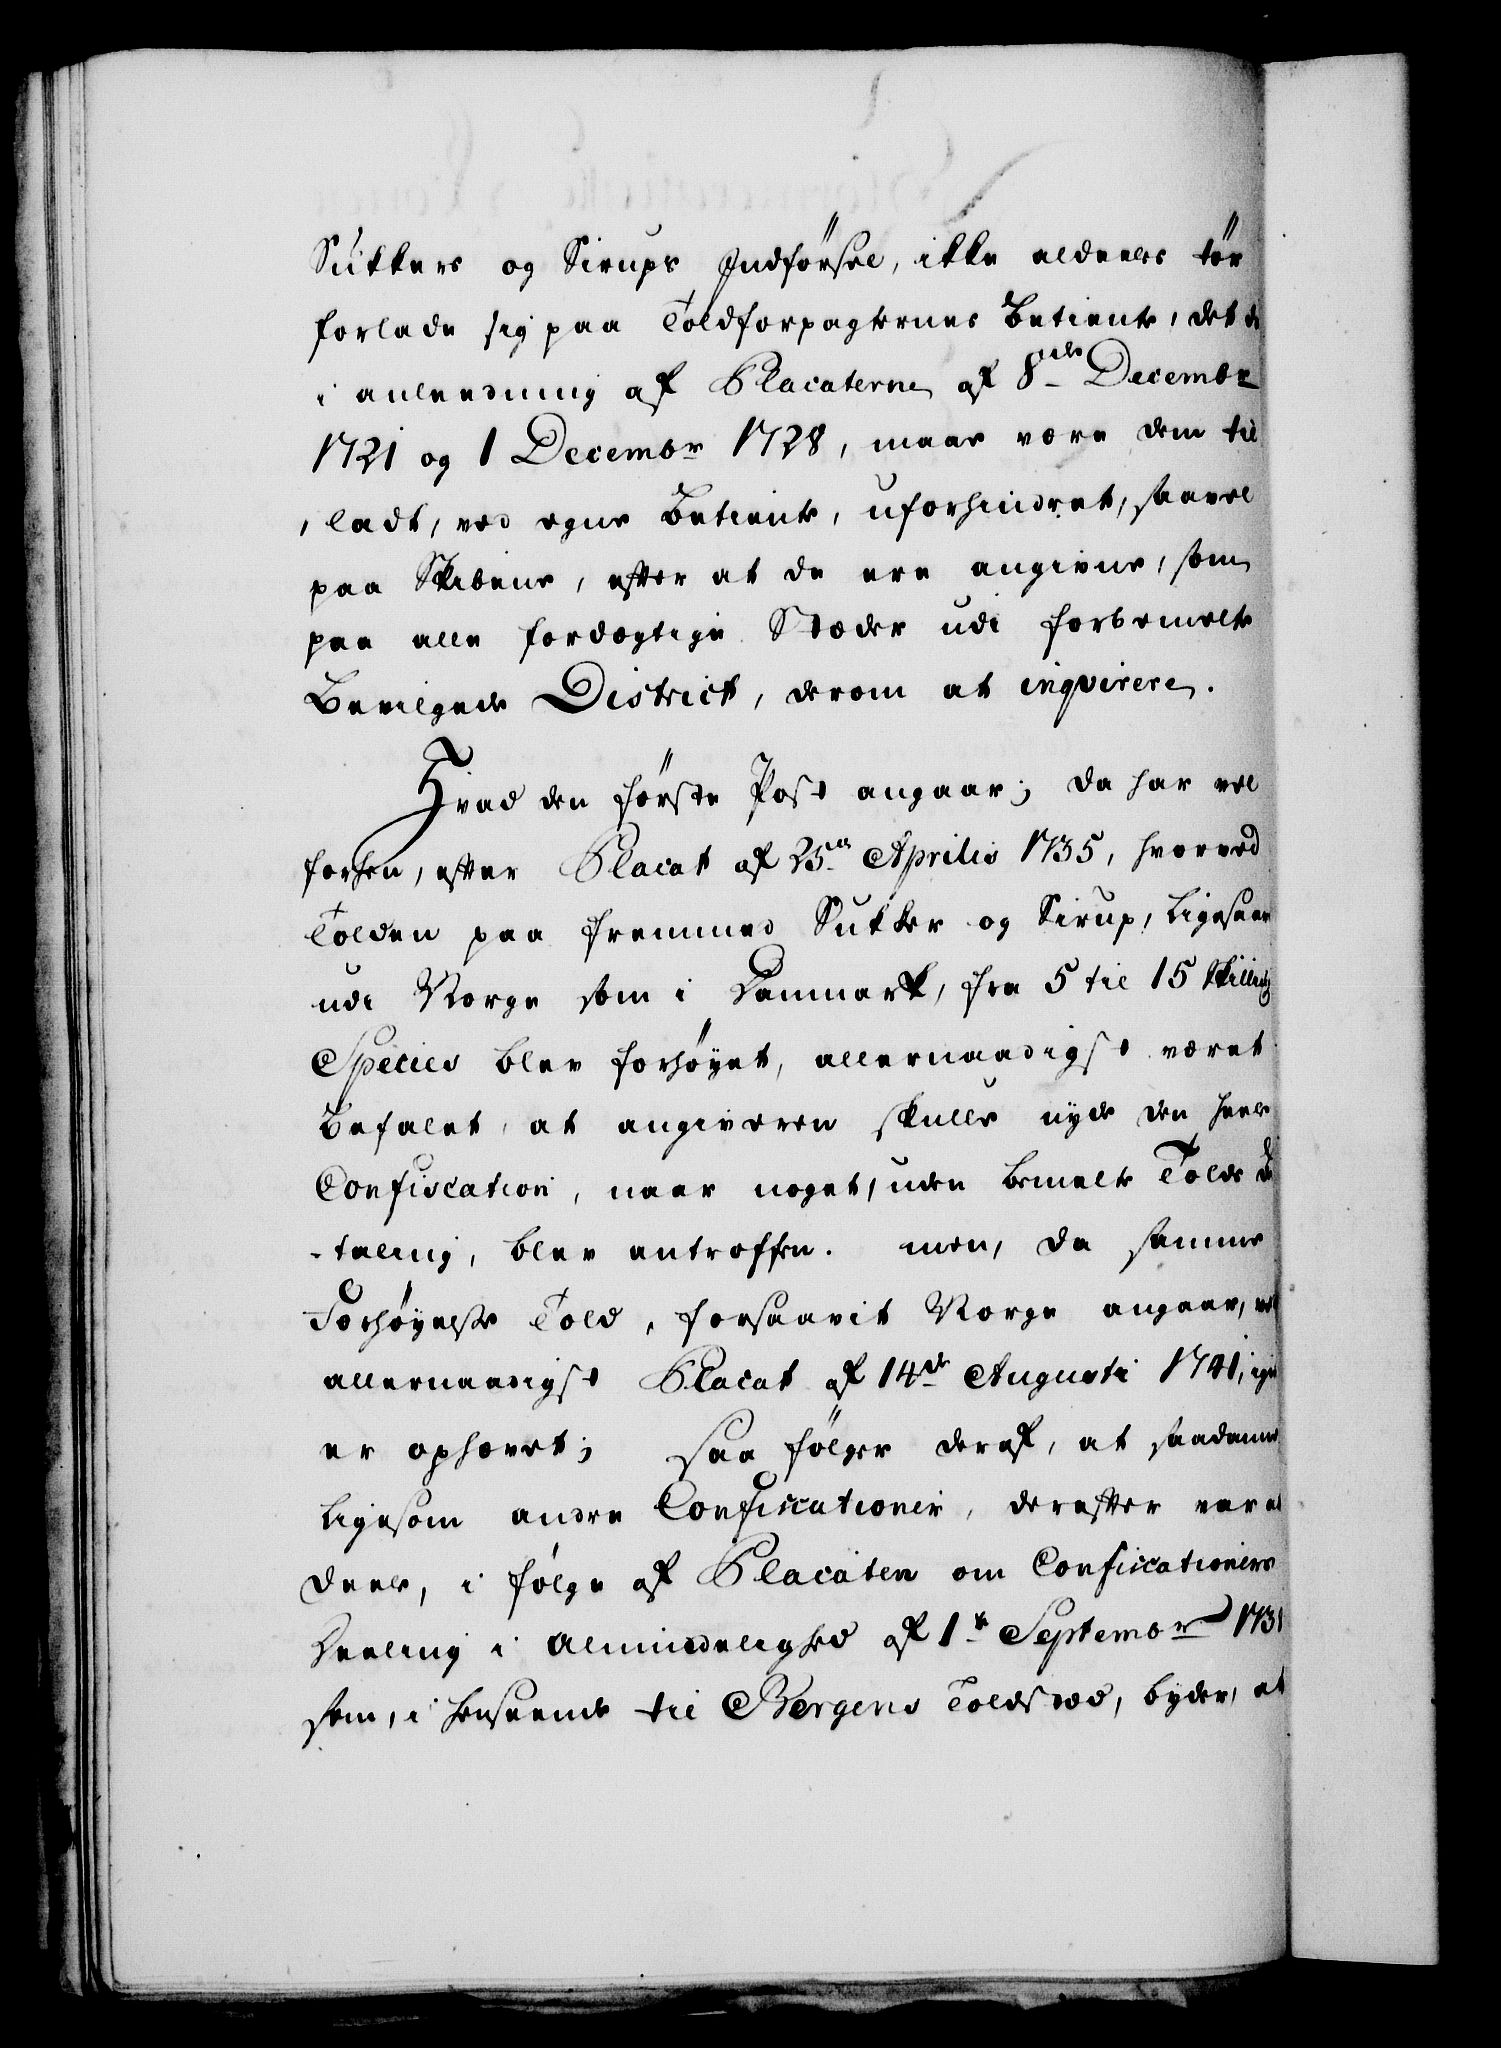 Sukkers og Sirups Indførsel, ikke aldeeles tør
forlade sig paa Toldforpagternes Betiente, det
i anleedning af Placaterne af 8de Decembr
1721 og 1 Decembr 1728, maae være dem til
ladt, ved egne Betiente, uforhindret, saavel
paa Skibene, efter at de ere angivne, som
paa alle fordægtige Stæder udi forbemelte
Bevilgede District, derom at inqvirere.
Hvad den første Post angaar; da har vel
forhen, efter Placat af 25de Aprilis 1735, hvorved
Tolden paa fremmed Sukker og Sirup, ligesaa
udi Norge som i Danmark, fra 5 til 15 skilling
Species blev forhøyet, allernaadigst været
befalet, at angiveren skulle nyde den heele
Confiscation, naar noget, uden bemelte Tolds Be
-taling, blev antroffen. men, da samme
Forhøyelse Told, forsaavit Norge angaaer, ved
allernaadigst Placat af 14de Augusti 1741, igien
er ophævet; saa følger deraf, at saadanne
ligesom andre Confiscationer, derefter
deele, i følge af Placaten om Confiscationers
Deeling i Almindelighed af 1te Septembr 1731
som, i henseende til Bergens Toldsted, byder, at